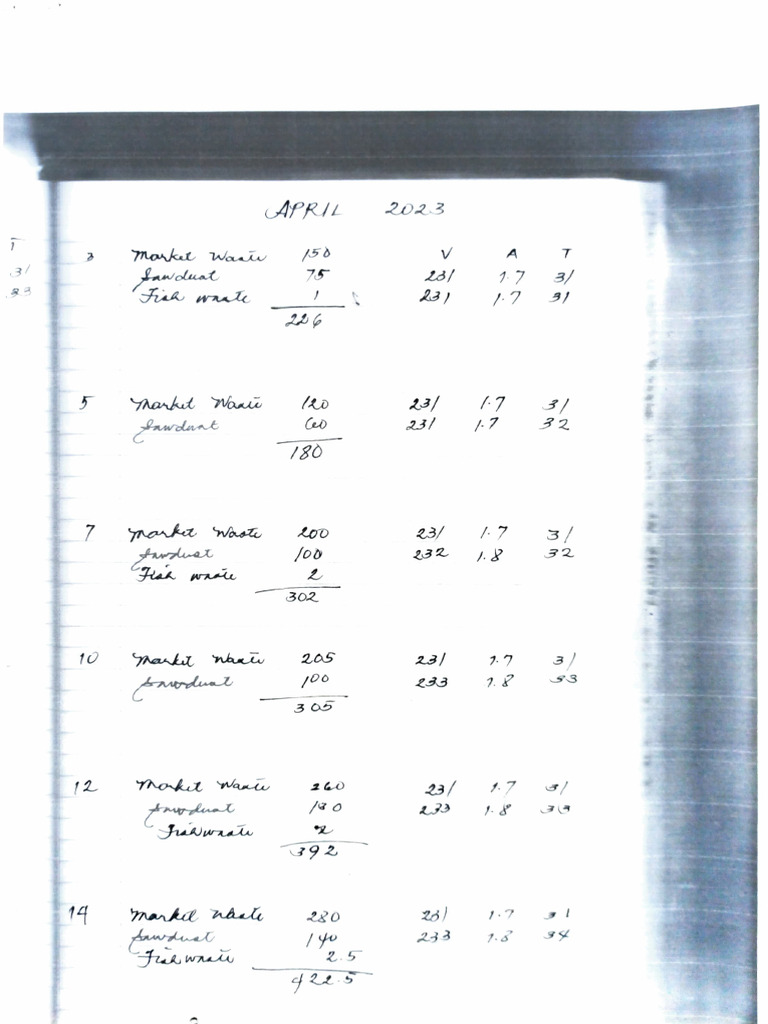 APRIL 2023
T
3 Market Waste 150 V A T
31 Sawdust 75 231 1.7 31
33 Fish waste 1 231 1.7 31
226
5 Market Waste 120 231 1.7 31
Sawdust 60 231 1.7 32
180
7 Market Waste 200 231 1.7 31
Sawdust 100 232 1.8 32
Fish waste 2
302
10 Market Waste 205 231 1.7 31
Sawdust 100 233 1.8 33
305
12 Market Waste 260 231 1.7 31
Sawdust 130 233 1.8 33
Fish waste 2
392
14 Market Waste 280 231 1.7 31
Sawdust 140 233 1.8 34
Fish waste 2.5
422.5